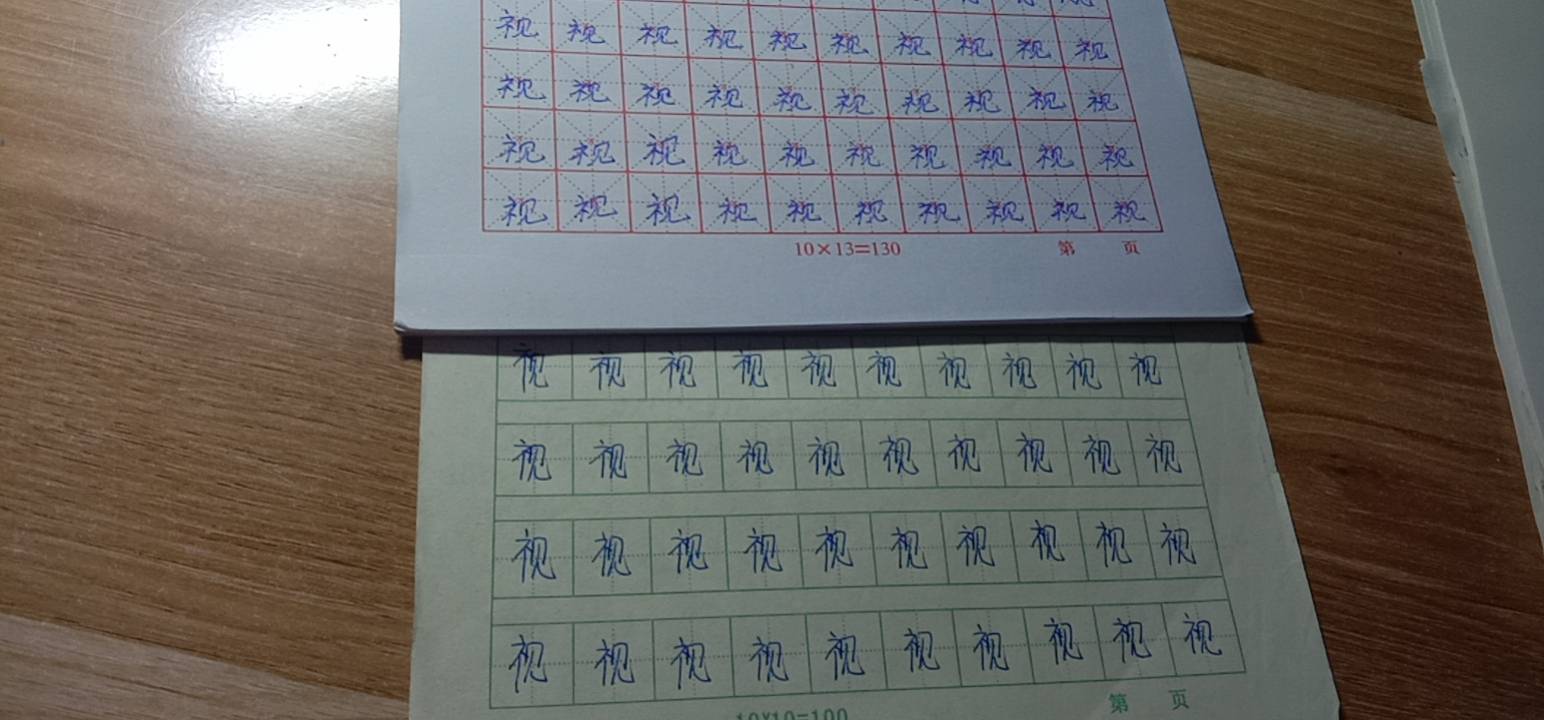 视 视 视 视 视 视 视 视 视 视
视 视 视 视 视 视 视 视 视 视
视 视 视 视 视 视 视 视 视 视
视 视 视 视 视 视 视 视 视 视
10×13=130 第 页
视 视 视 视 视 视 视 视 视 视
视 视 视 视 视 视 视 视 视 视
视 视 视 视 视 视 视 视 视 视
视 视 视 视 视 视 视 视 视 视
10×10=100 第 页